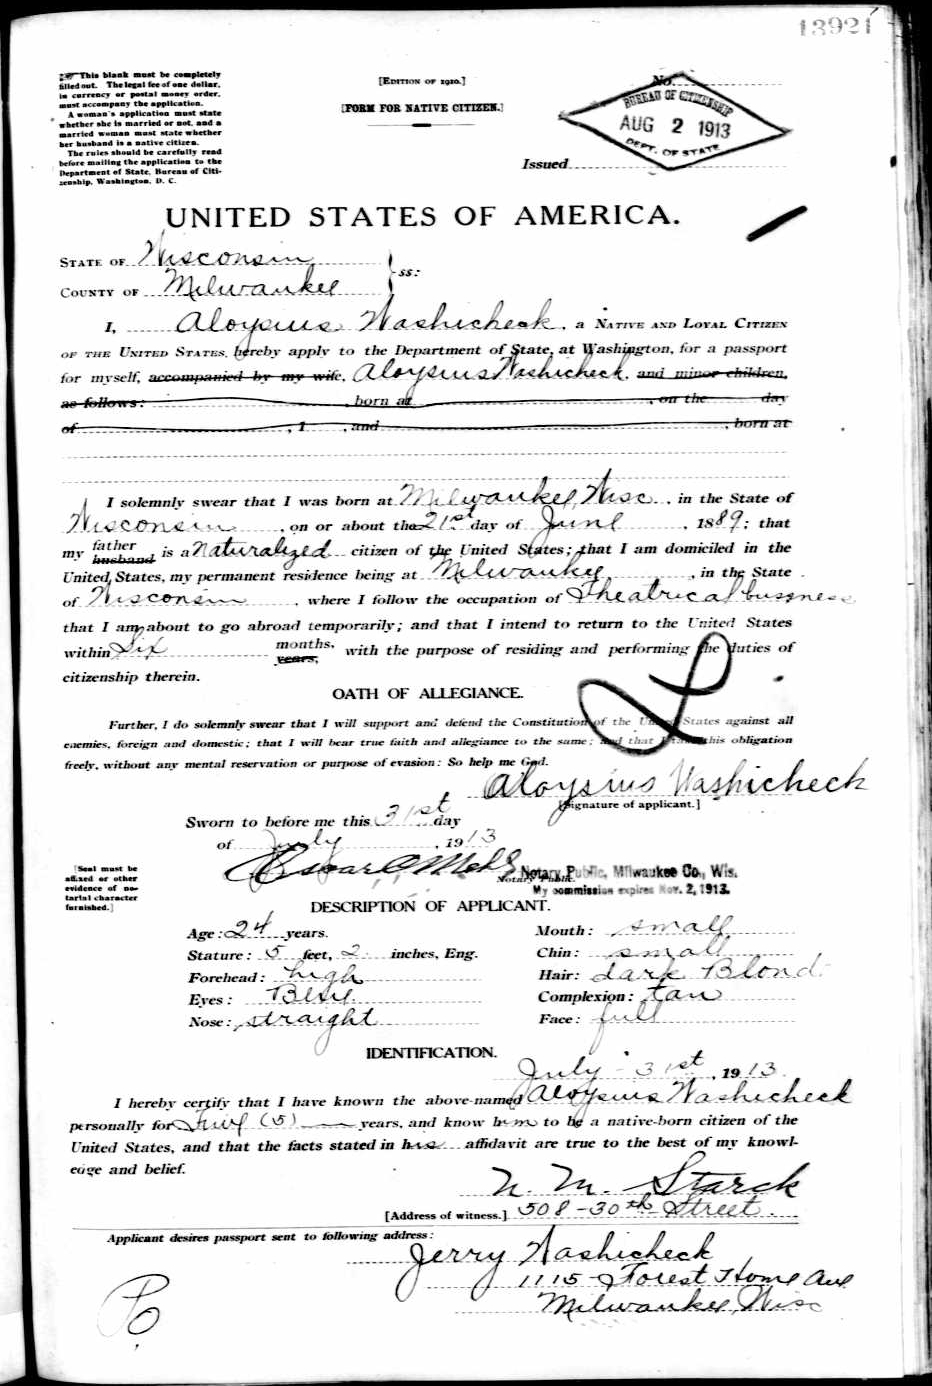 13921
☞ This blank must be completely
filled out. The legal fee of one dollar,
in currency or postal money order,
must accompany the application.
A woman's application must state
whether she is married or not, and a
married woman must state whether
her husband is a native citizen.
The rules should be carefully read
before mailing the application to the
Department of State, Bureau of Citi-
zenship, Washington, D. C.
[EDITION OF 1910.]
[FORM FOR NATIVE CITIZEN.]
No.
BUREAU OF CITIZENSHIP
AUG 2 1913
DEPT. OF STATE
Issued
UNITED STATES OF AMERICA.
STATE OF Wisconsin
COUNTY OF Milwaukee
ss:
I, Aloysius Washicheck, a NATIVE AND LOYAL CITIZEN
OF THE UNITED STATES, hereby apply to the Department of State, at Washington, for a passport
for myself, accompanied by my wife, Aloysius Washicheck, and minor children,
as follows: , born at , on the day
of , 1 , and , born at
I solemnly swear that I was born at Milwaukee, Wisc. , in the State of
Wisconsin , on or about the 21st day of June , 1889; that
my father husband is a Naturalized citizen of the United States; that I am domiciled in the
United States, my permanent residence being at Milwaukee , in the State
of Wisconsin , where I follow the occupation of Theatrical bussness
that I am about to go abroad temporarily; and that I intend to return to the United States
within Six months, years, with the purpose of residing and performing the duties of
citizenship therein.
OATH OF ALLEGIANCE.
Further, I do solemnly swear that I will support and defend the Constitution of the United States against all
enemies, foreign and domestic; that I will bear true faith and allegiance to the same; and that I take this obligation
freely, without any mental reservation or purpose of evasion: So help me God.
Aloysius Washicheck
[Signature of applicant.]
Sworn to before me this 31st day
of July , 1913
[Seal must be
affixed or other
evidence of no-
tarial character
furnished.]
Oscar
Notary Public.
Notary Public, Milwaukee Co., Wis.
My commission expires Nov. 2, 1913.
DESCRIPTION OF APPLICANT.
Age: 24 years.
Mouth: small
Stature: 5 feet, 2 inches, Eng.
Chin: small
Forehead: high
Hair: dark Blond
Eyes: Blue
Complexion: tan
Nose: straight
Face: full
IDENTIFICATION.
July 31st , 1913
I hereby certify that I have known the above-named Aloysius Washicheck
personally for Five (5) years, and know him to be a native-born citizen of the
United States, and that the facts stated in his affidavit are true to the best of my knowl-
edge and belief.
N. M. Starck
[Address of witness.] 508-30th Street.
Applicant desires passport sent to following address:
Jerry Washicheck
1115 Forest Home Ave
Milwaukee, Wisc